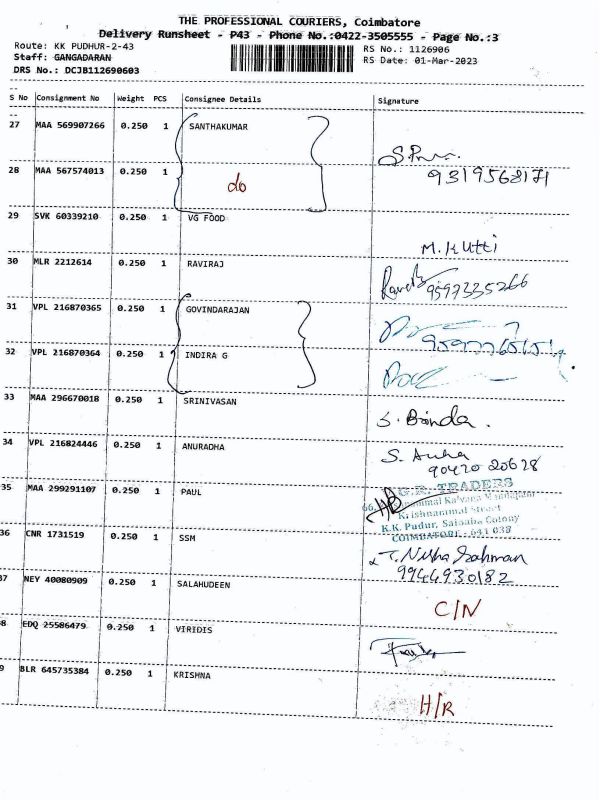 THE PROFESSIONAL COURIERS, Coimbatore
Delivery Runsheet - P43 - Phone No.:0422-3505555 - Page No.:3
Route: KK PUDHUR-2-43
RS No.: 1126906
Staff: GANGADARAN
RS Date: 01-Mar-2023
DRS No.: DCJB112690603
S No Consignment No Weight PCS Consignee Details Signature
27 MAA 569907266 0.250 1 SANTHAKUMAR
28 MAA 567574013 0.250 1 do 9319568171
29 SVK 60339210 0.250 1 VG FOOD M. Kutti
30 MLR 2212614 0.250 1 RAVIRAJ 9597335266
31 VPL 216870365 0.250 1 GOVINDARAJAN
32 VPL 216870364 0.250 1 INDIRA G
33 MAA 296670018 0.250 1 SRINIVASAN
34 VPL 216824446 0.250 1 ANURADHA S. Anha
90420 20628
35 MAA 299291107 0.250 1 PAUL G.R. TRADERS
Krishnammal Street
K.K. Pudur, Saibaba Colony
COIMBATORE - 641 038
36 CNR 1731519 0.250 1 SSM T. Nisha Rahman
9944930182
37 NEY 40080909 0.250 1 SALAHUDEEN C/N
38 EDQ 25586479 0.250 1 VIRIDIS
39 BLR 645735384 0.250 1 KRISHNA H/R